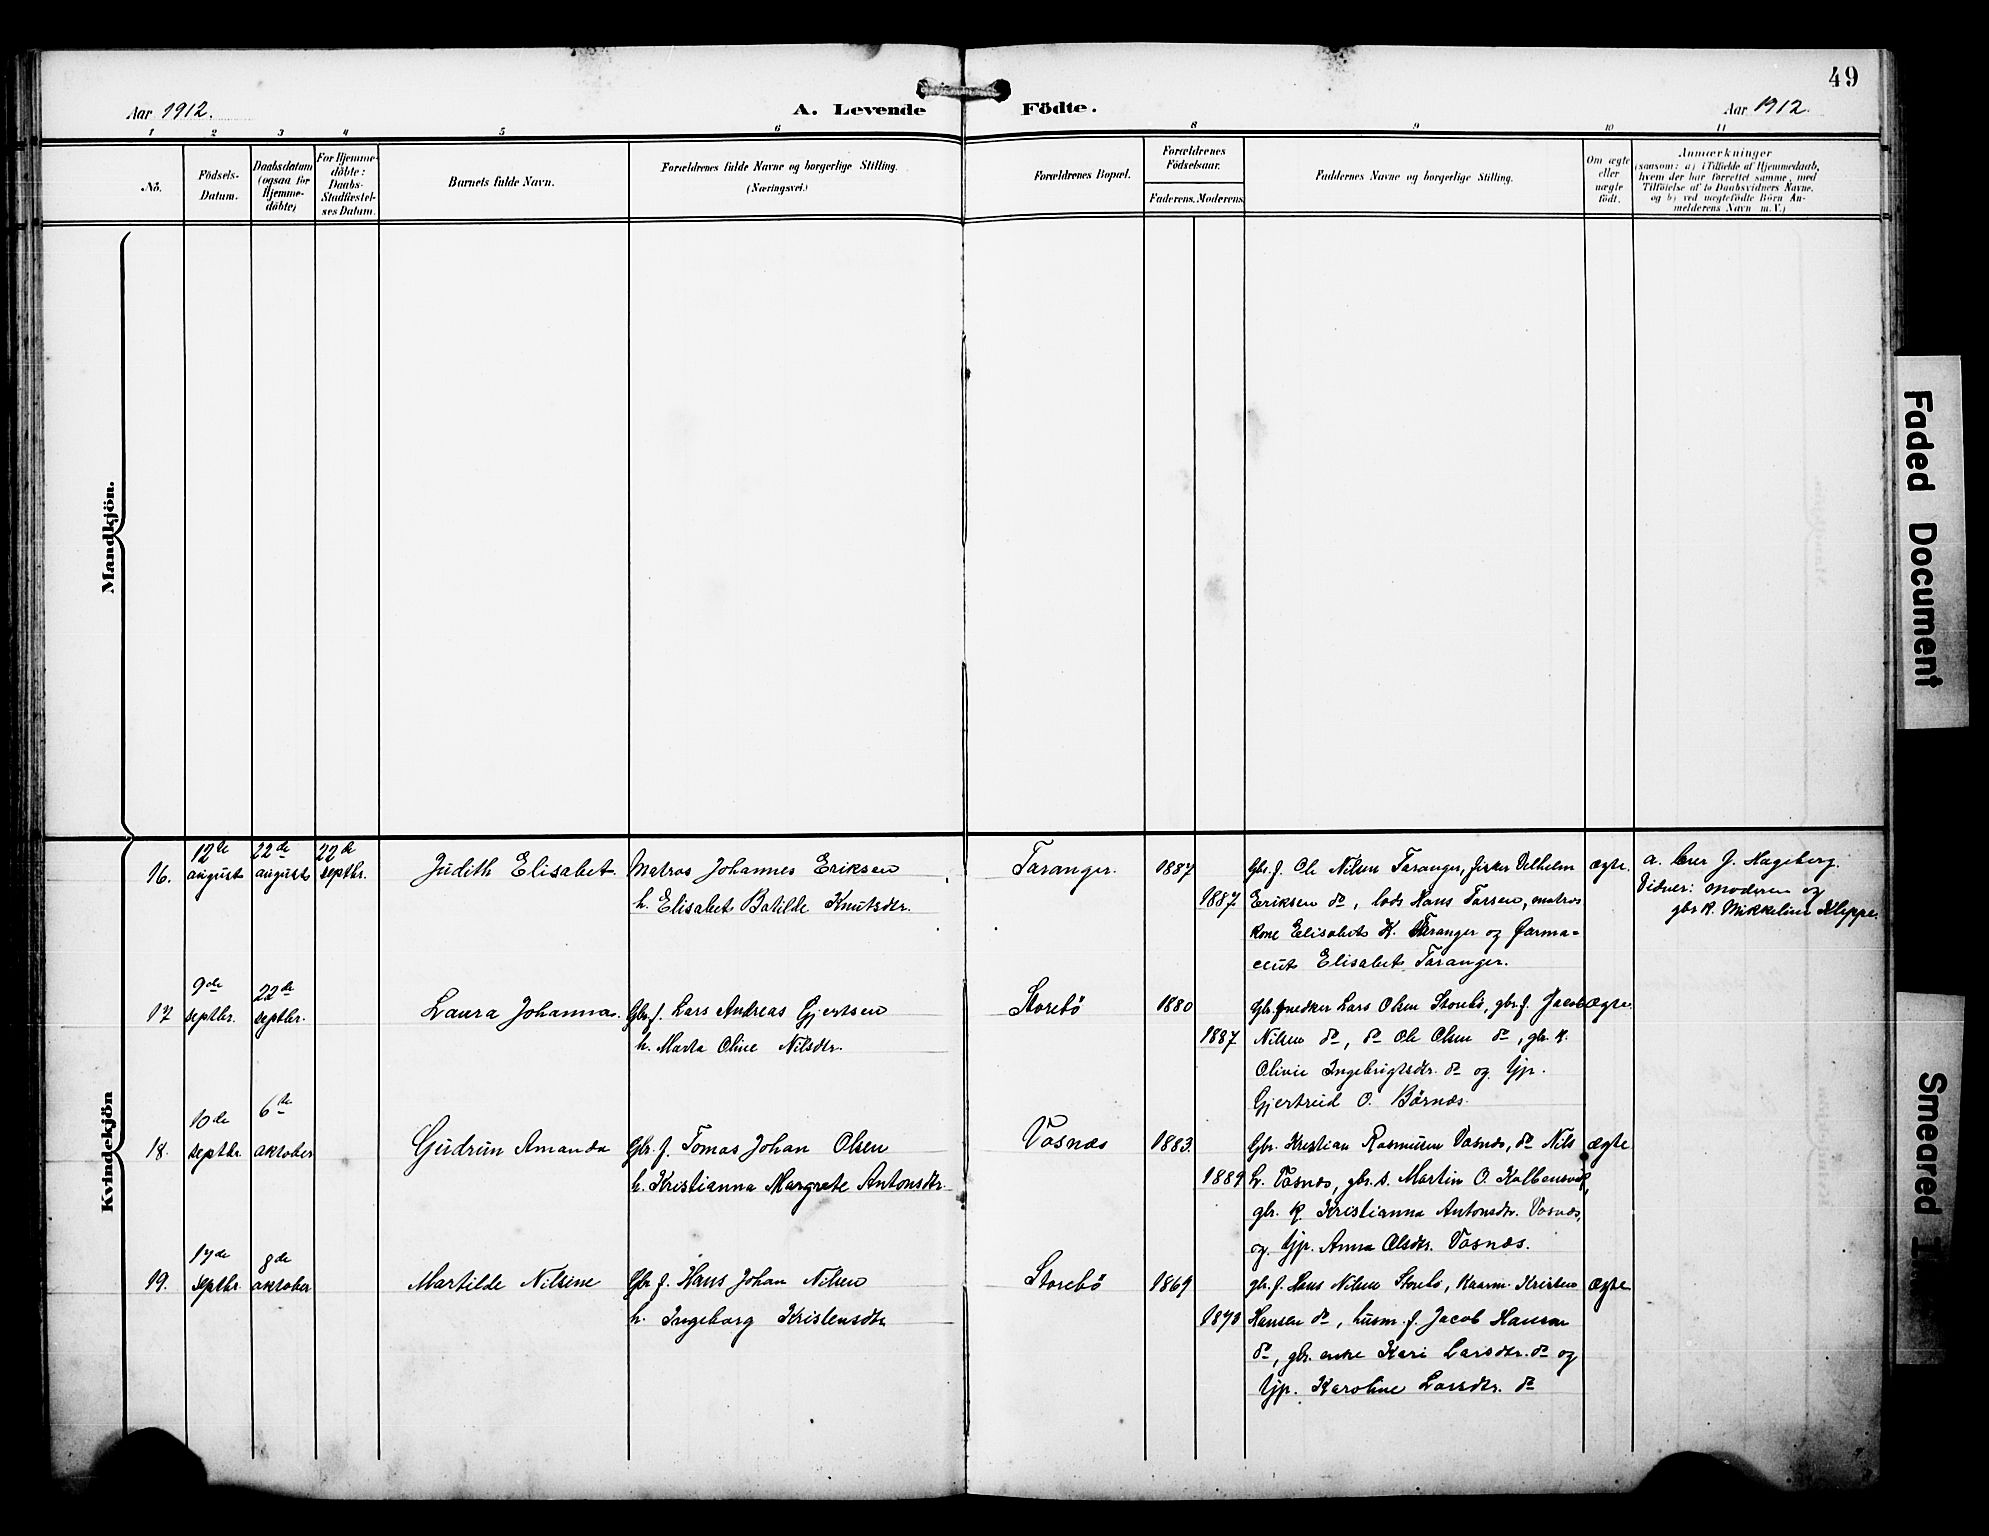 49
Aar 1912.
A. Levende Födte.
Aar 1912.
1 2 3 4 5 6 8 9 10 11
No.
Födsels-
Datum.
Daabsdatum
(ogsaa for
Hjemme-
döbte)
For Hjemme-
döbte:
Daabs-
Stadfæstel-
ses Datum.
Barnets fulde Navn.
Forældrenes fulde Navne og borgerlige Stilling.
(Næringsvei.)
Forældrenes Bopæl.
Forældrenes
Födselsaar.
Faderens. Moderens.
Faddernes Navne og borgerlige Stilling.
Om ægte
eller
uægte
födt.
Anmærkninger
(saasom: a) i Tilfælde af Hjemmedaab,
hvem der har forrettet samme, med
Tilföielse af to Daabsvidners Navne.
og b) ved uægtefödte Börn An-
melderens Navn m. V.)
Mandkjön.
Kvindekjön
16.
12te
august
22de
august
22de
septbr.
Judith Elisabet.
Matros Johannes Eriksen
h. Elisabet Batilde Knutsdtr.
Taranger.
1887
1887
Gbr. f. Ole Nilsen Taranger, fisker Vilhelm
Eriksen do, lods Hans Larsen, matros
kone Elisabet K. Taranger og farma-
ceut Elisabet Taranger.
ægte.
a. lærer J. Hageberg.
Vidner: moderen og
gbr k. Mikkeline Kleppe.
17
9de
septbr.
22de
septbr.
Laura Johanna.
Gbr. f. Lars Andreas Gjertsen
h. Marta Oline Nilsdtr.
Storebø
1880
1887
Gbr. snedker Lars Olsen Storebø, gbr. f. Jacob
Nilsen do, do Ole Olsen do, gbr. k.
Olivie Ingebrigtsdtr. do og tjp.
Gjertrud O. Børnes.
ægte.
18.
10de
septbr.
6te
oktober
Gudrun Amanda
Gbr. f. Tomas Johan Olsen
h. Kristianna Margrete Antonsdtr.
Vosnæs
1883.
1889
Gbr. Kristian Rasmusen Vosnæs, do Nils
L. Vosnæs, gbr. s. Martin O. Kolbensvik,
gbr. k. Kristianna Antonsdtr. Vosnæs,
og tjp. Anna Olsdtr. Vosnæs.
ægte
19.
17de
septbr.
8de
oktober
Martilde Nilsine
Gbr. f. Hans Johan Nilsen
h. Ingeborg Kristensdtr
Storebø
1869
1870
gbr. f. Hans Nilsen Storebø, Kaarm. Kristen
Hansen do, husm. f. Jacob Hanson
do, gbr. enke Kari Larsdtr. do og
tjp. Karoline Larsdtr. do
ægte
Faded Document
Smeared